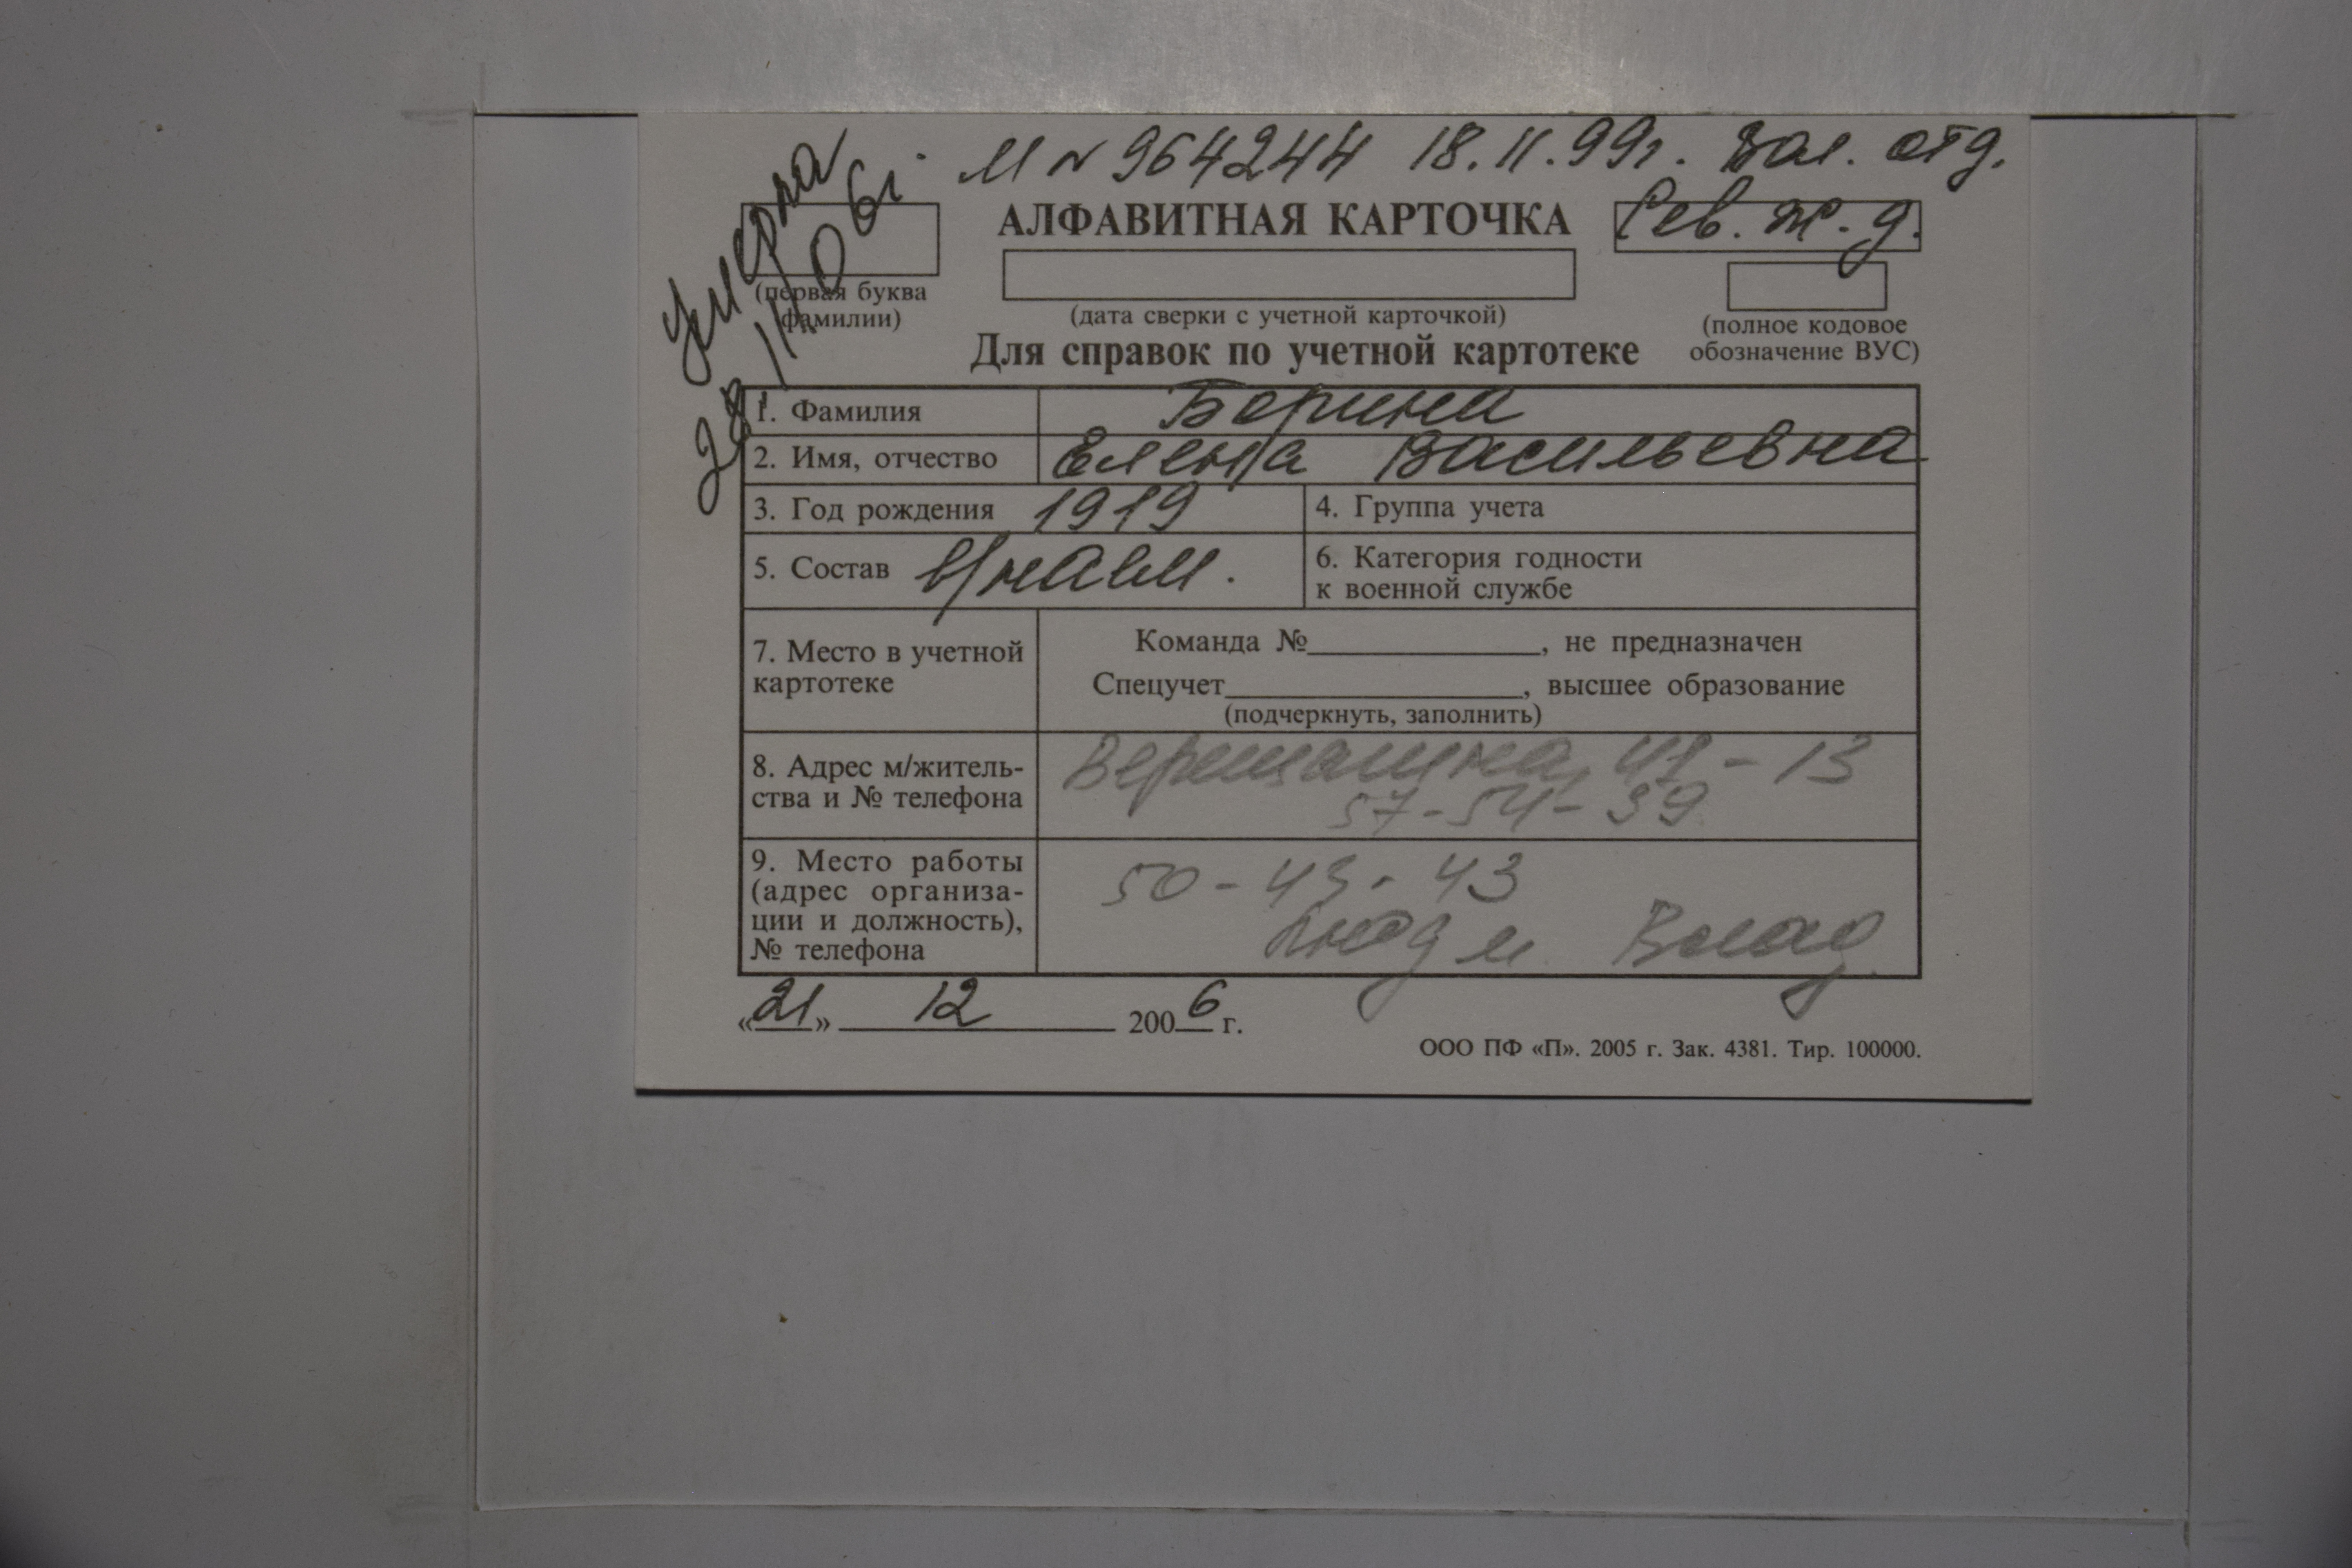 М № 964244 18.11.99г. Вол. отд.
Сев. ж. д.
Умерла
АЛФАВИТНАЯ КАРТОЧКА
(первая буква
фамилии)
(дата сверки с учетной карточкой)
(полное кодовое
обозначение ВУС)
Для справок по учетной картотеке
1. Фамилия Борина
2. Имя, отчество Елена Васильевна
3. Год рождения 1919
4. Группа учета
5. Состав в/наем.
6. Категория годности
к военной службе
7. Место в учетной
картотеке
Команда №, не предназначен
Спецучет, высшее образование
(подчеркнуть, заполнить)
8. Адрес м/житель-
ства и № телефона
57-54-39
9. Место работы
(адрес организа-
ции и должность),
№ телефона
50-43-43
Люд м Влад
«21» 12 2006 г.
ООО ПФ «П». 2005 г. Зак. 4381. Тир. 100000.